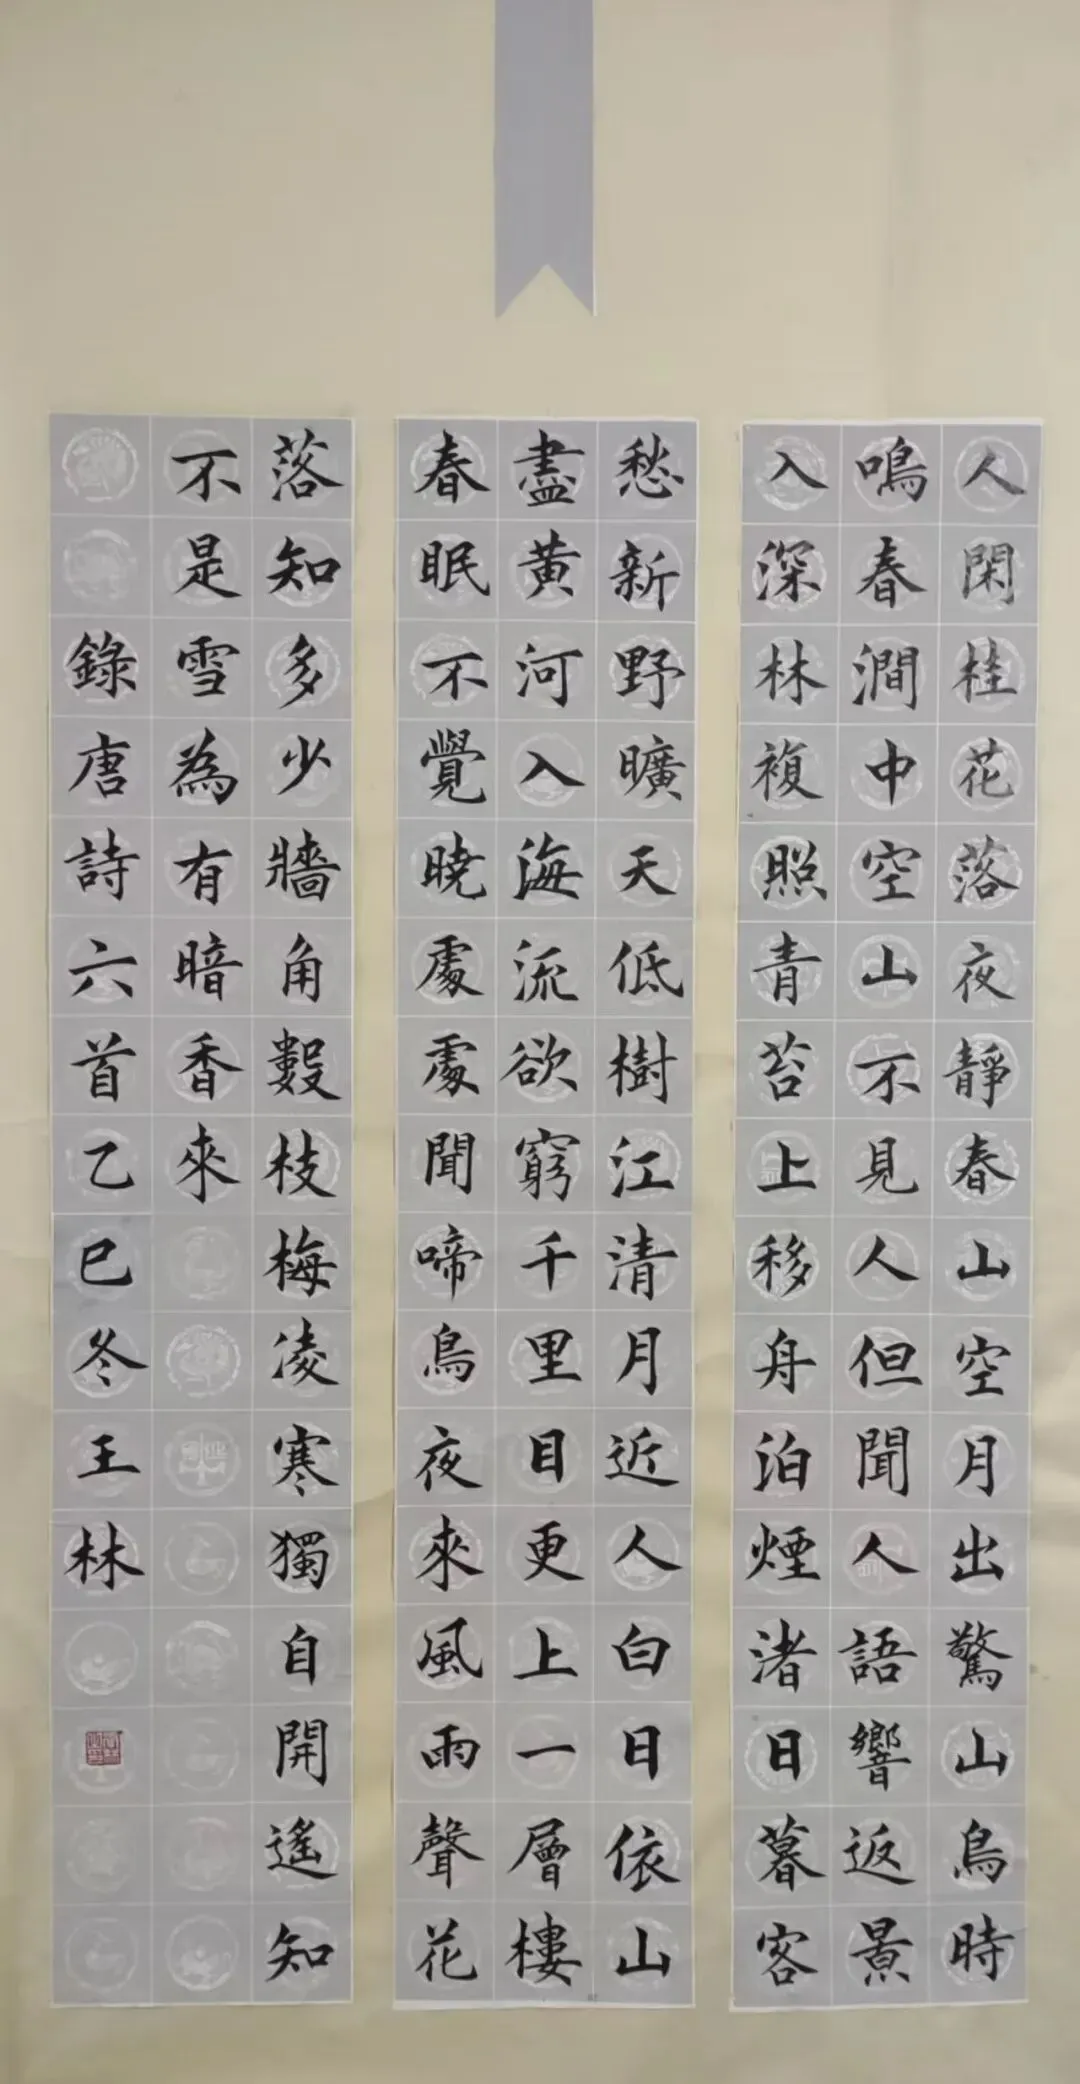 人閑桂花落夜靜春山空月出驚山鳥時
鳴春澗中空山不見人但聞人語響返景
入深林複照青苔上移舟泊煙渚日暮客
愁新野曠天低樹江清月近人白日依山
盡黃河入海流欲窮千里目更上一層樓
春眠不覺曉處處聞啼鳥夜來風雨聲花
落知多少牆角數枝梅凌寒獨自開遙知
不是雪為有暗香來
錄唐詩六首乙巳冬王林